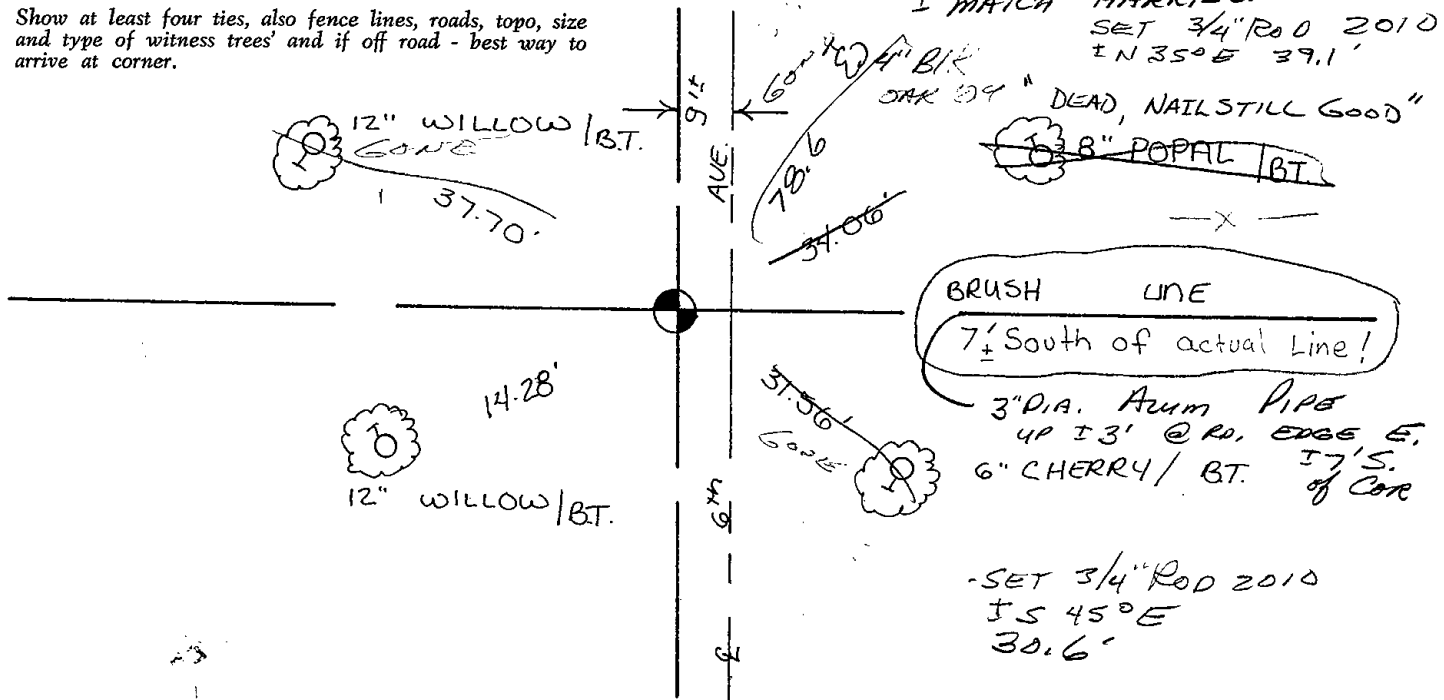 Show at least four ties, also fence lines, roads, topo, size
and type of witness trees' and if off road - best way to
arrive at corner.
SET 3/4" ROD 2010
± N 35° E 39.1'
4" BLK
OAK '04
"DEAD, NAIL STILL GOOD"
8" POPAL / BT.
12" WILLOW / B.T.
GONE
37.70'
9'±
AVE.
78.6
34.06'
— X —
BRUSH LINE
7'± South of actual Line!
14.28'
12" WILLOW / B.T.
31.56'
GONE
3" DIA. Alum PIPE
UP ± 3' @ RD. EDGE E.
± 7' S.
of Cor
6" CHERRY / BT.
6th
- SET 3/4" ROD 2010
± S 45° E
30.6'
℄